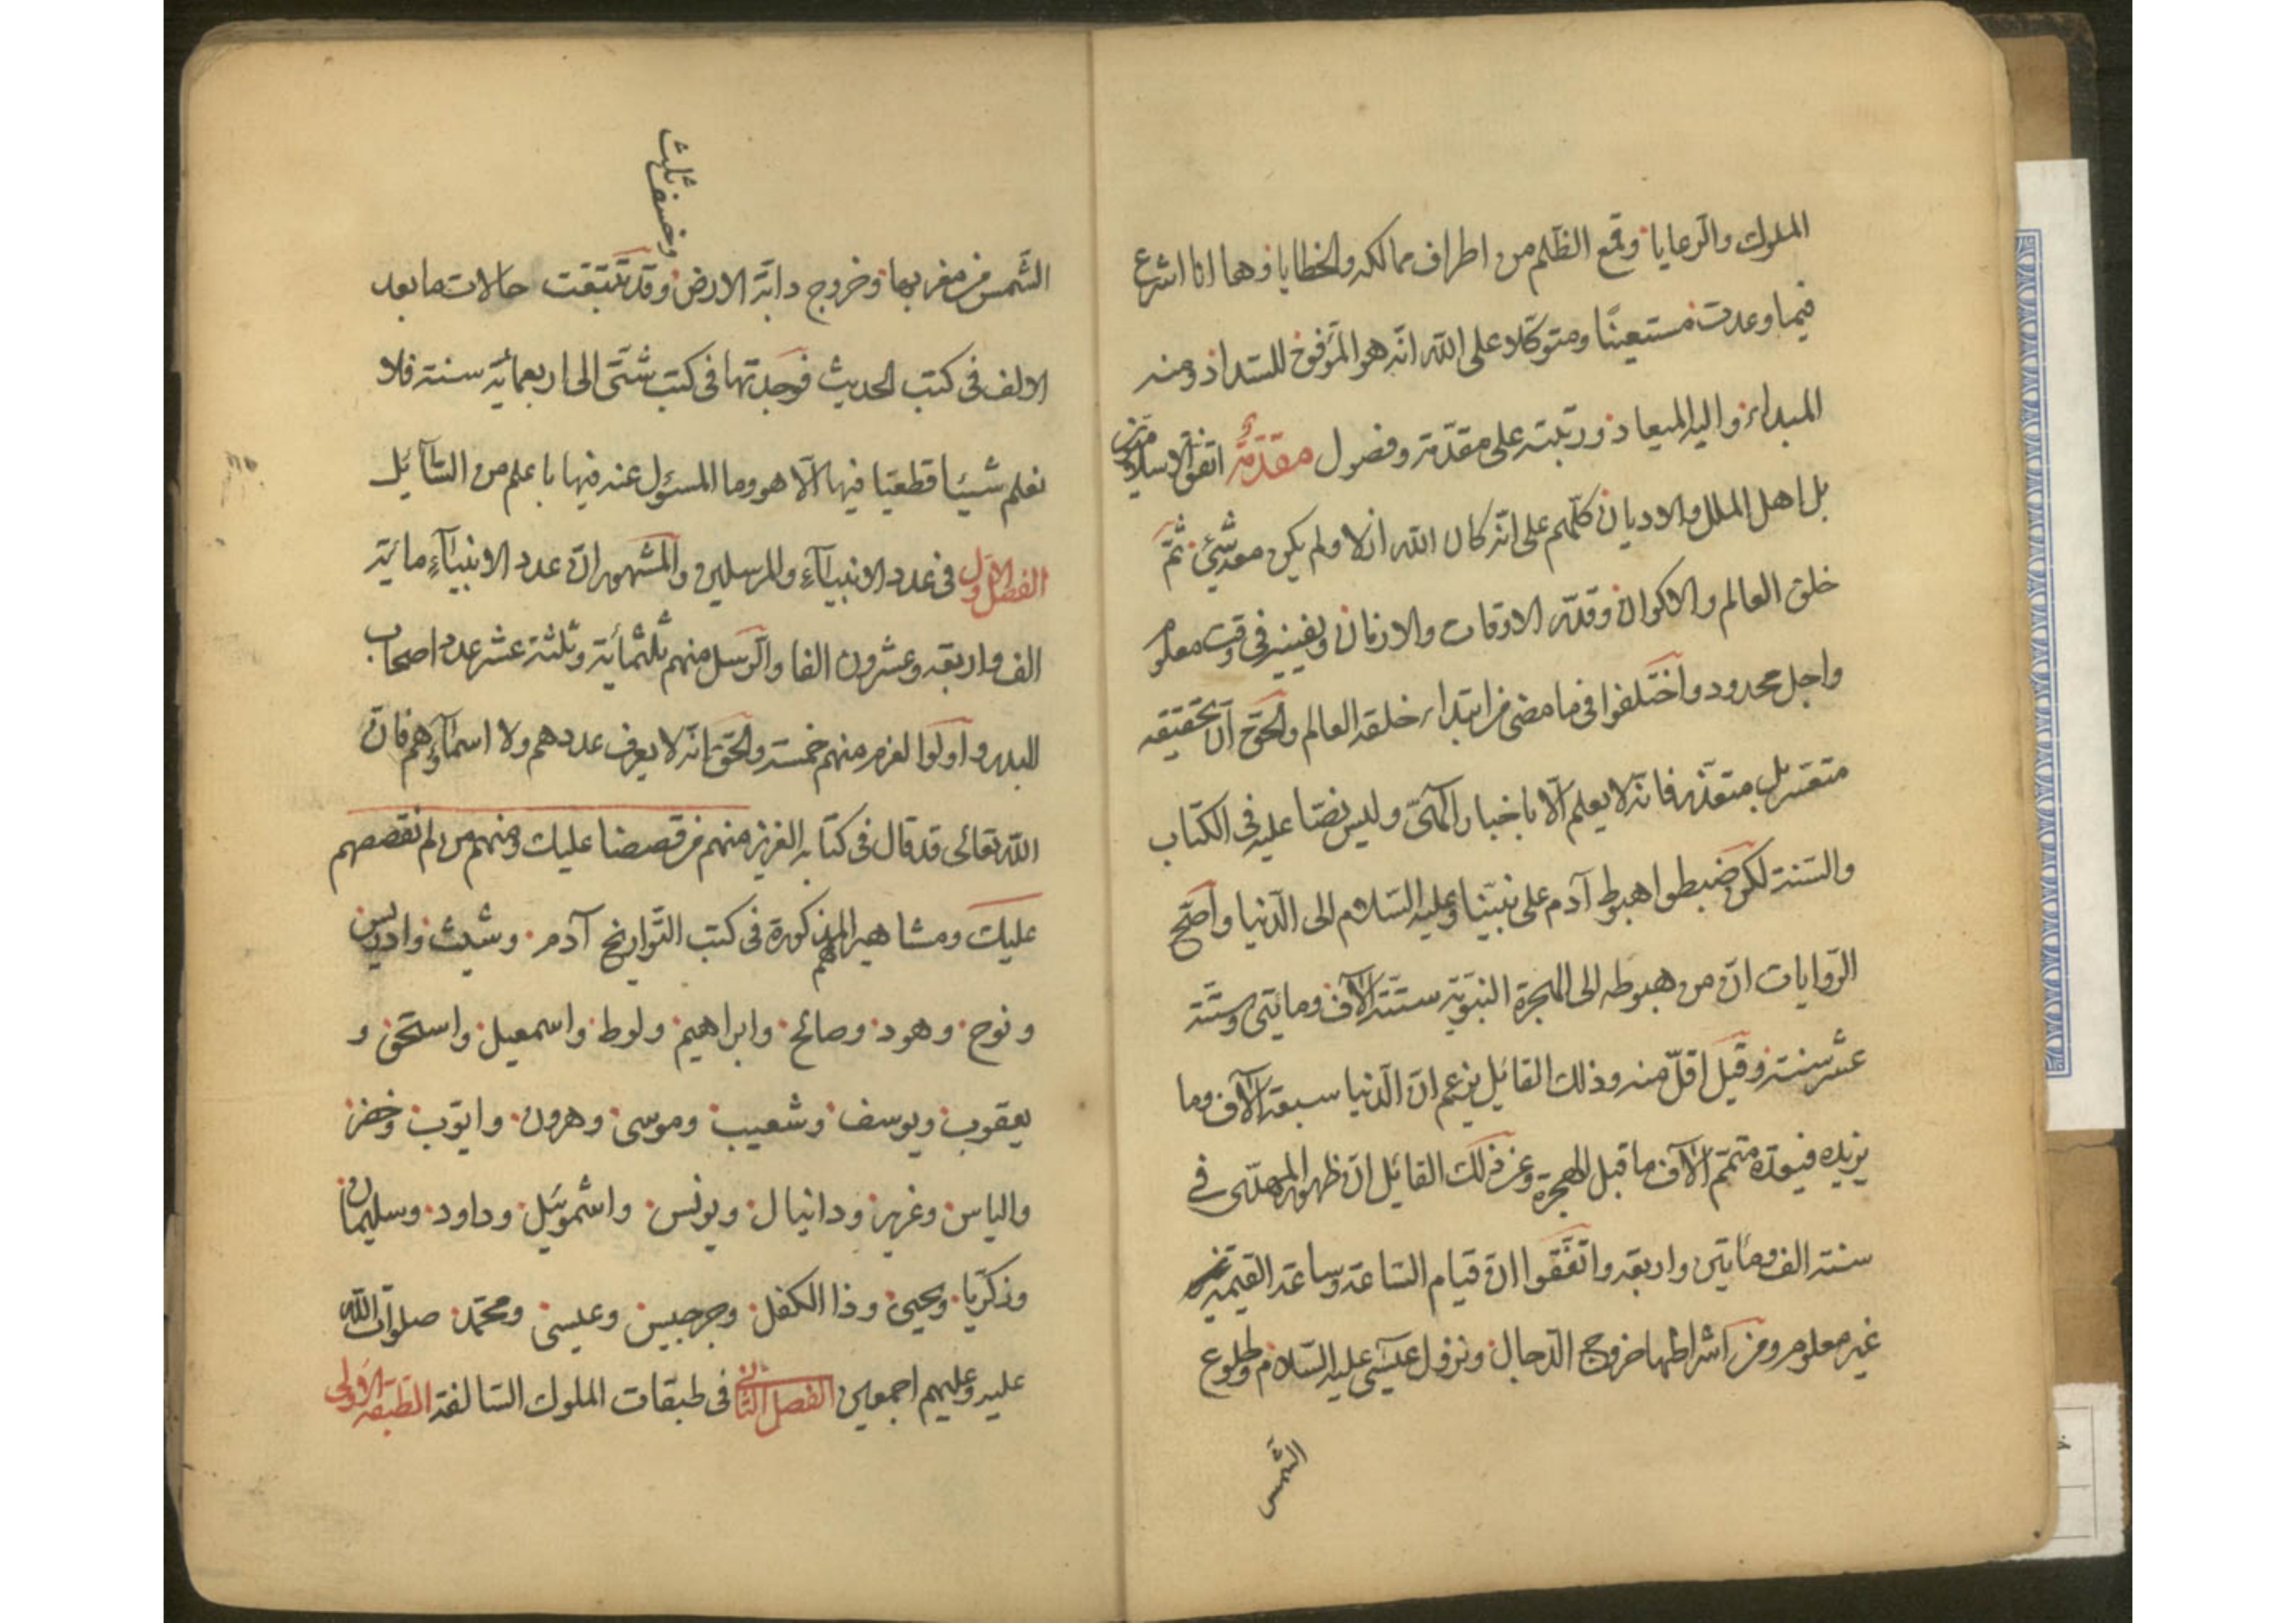 الملوك والرعايا وقمع الظلم من اطراف ممالكه والخطايا وها انا اشرع
فيما وعدت مستعينًا ومتوكلا على الله انه هو الموفق للسداد ومنه
المبداء واليه الميعاد ورتبته على مقدّمة وفصول مقدّمة اتفق الاسلاميون
بل اهل الملل والاديان كلّهم على انه كان الله ازلا ولم يكن معه شيئ ثمّ
خلق العالم والاكوان وقدّر الاوقات والازمان ويفنيه في وقت معلوم
واجل محدود واختلفوا في ما مضى من ابتداء خلقة العالم والحقّ انّ تحقيقه
متعسر بل متعذّر فانه لا يعلم الّا باخبار الٓهيّ وليس نصّا عليه في الكتاب
والسّنة لكن ضبطوا هبوط آدم على نبيّنا وعليه السّلام الى الدّنيا واصحّ
الرّوايات انّ من هبوطه الى الهجرة النبّوية ستّة الٓاف ومايتى وستّة
عشر سنة وقيل اقلّ منه وذلك القائل يزعم انّ الدّنيا سبعة الٓاف وما
يزيده فيعدّه متمّم الٓاف ما قبل الهجرة وعن ذلك القائل انّ ظهور المهدّى في
سنة الف ومأتين واربعة واتّفقوا انّ قيام السّاعة وساعة القيمة
غير معلوم ومن اشراطها خروج الدّجال ونزول عيسى عليه السّلام وطلوع
الشّمس
وخسف ثلث
الشّمس من مغربها وخروج دابّة الارض وقد تتبّعت حالات ما بعد
الالف في كتب الحديث فوجدتها في كتب شتّى الى اربعمائة سنة فلا
نعلم شيئا قطعيّا فيها الّا هو وما المسؤل عنه فيها باعلم من السّآئل
الفصل الاول في عدد الانبيآء والمرسلين والمشهور انّ عدد الانبيآء مائة
الف واربعة وعشرون الفا والرّسل منهم ثلثمائة وثلثة عشر عدد اصحاب
البدر واولوا العزم منهم خمسة والحقّ انّه لا يعرف عددهم ولا اسمآؤهم فانّ
الله تعالى قد قال في كتابه العزيز منهم من قصصنا عليك ومنهم من لم نقصصهم
عليك ومشاهيرهم المذكورة في كتب التّواريخ آدم وشيث وادريس
ونوح وهود وصالح وابراهيم ولوط واسمعيل واسحق و
يعقوب ويوسف وشعيب وموسى وهرون وايّوب وخضر
والياس وعزير ودانيال ويونس واشمويّل وداود وسليمان
وزكريّا ويحيى وذا الكفل وجرجيس وعيسى ومحمّد صلوات اللّه
عليه وعليهم اجمعين الفصل الثانى في طبقات الملوك السّالفة الطّبقة الاولى